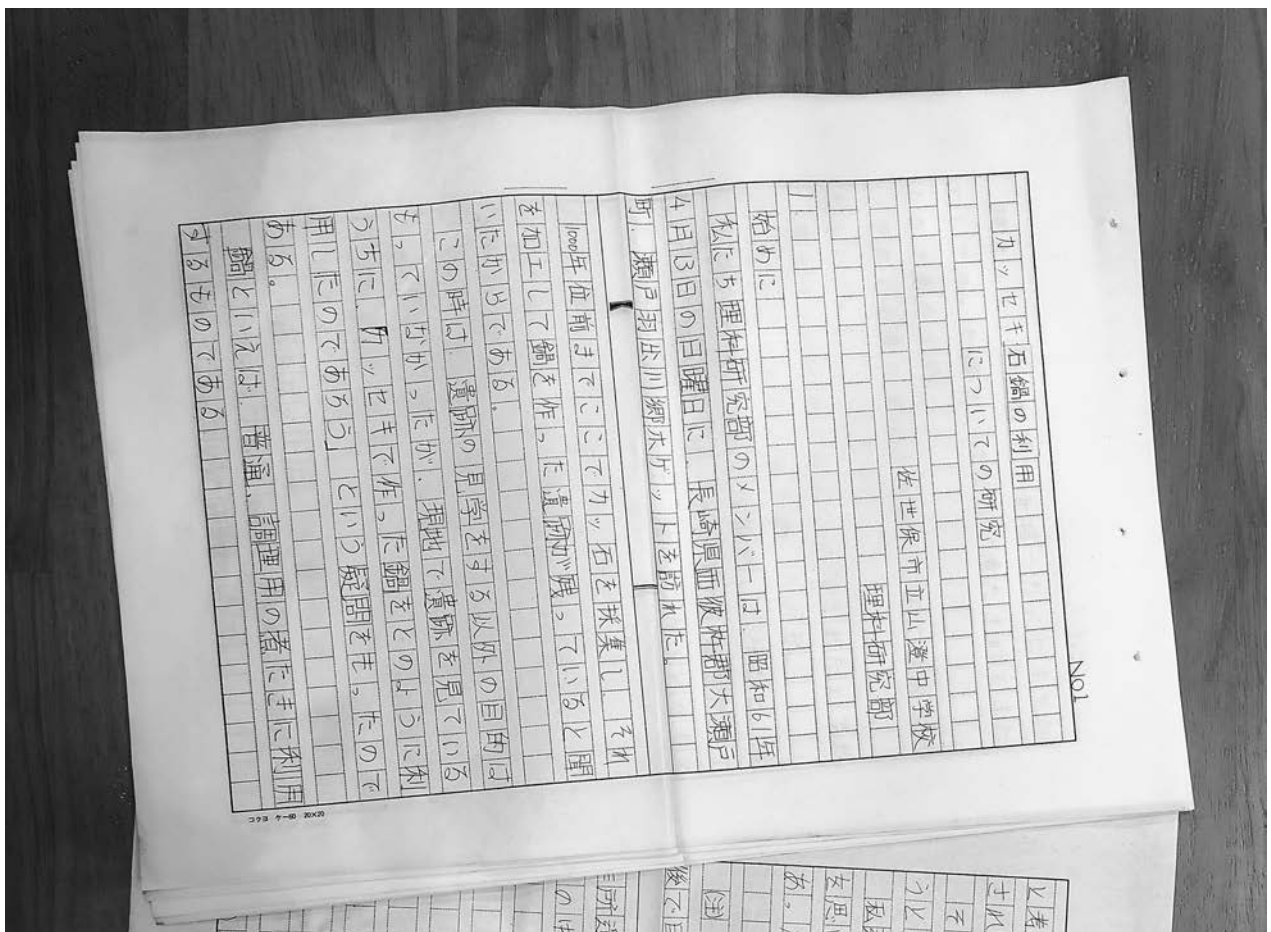 No1
カッセキ石鍋の利用
についての研究
佐世保市立山澄中学校
理科研究部
1
始めに
私たち理科研究部のメンバーは、昭和61年
4月13日の日曜日に、長崎県西彼杵郡大瀬戸
町、瀬戸羽出川郷ホゲットを訪れた。
1000年位前までここでカッ石を採集し、それ
を加工して鍋を作った遺跡が残っていると聞
いたからである。
この時は、遺跡の見学をする以外の目的は
もっていなかったが、現地で遺跡を見ている
うちに、「カッセキで作った鍋をどのように利
用したのであろう」という疑問をもったので
ある。
鍋といえば、普通、調理用の煮たきに利用
するものである
コクヨ ケー60 20×20
と考
され
そ
うと
私
女思
あっ
(注)
後で